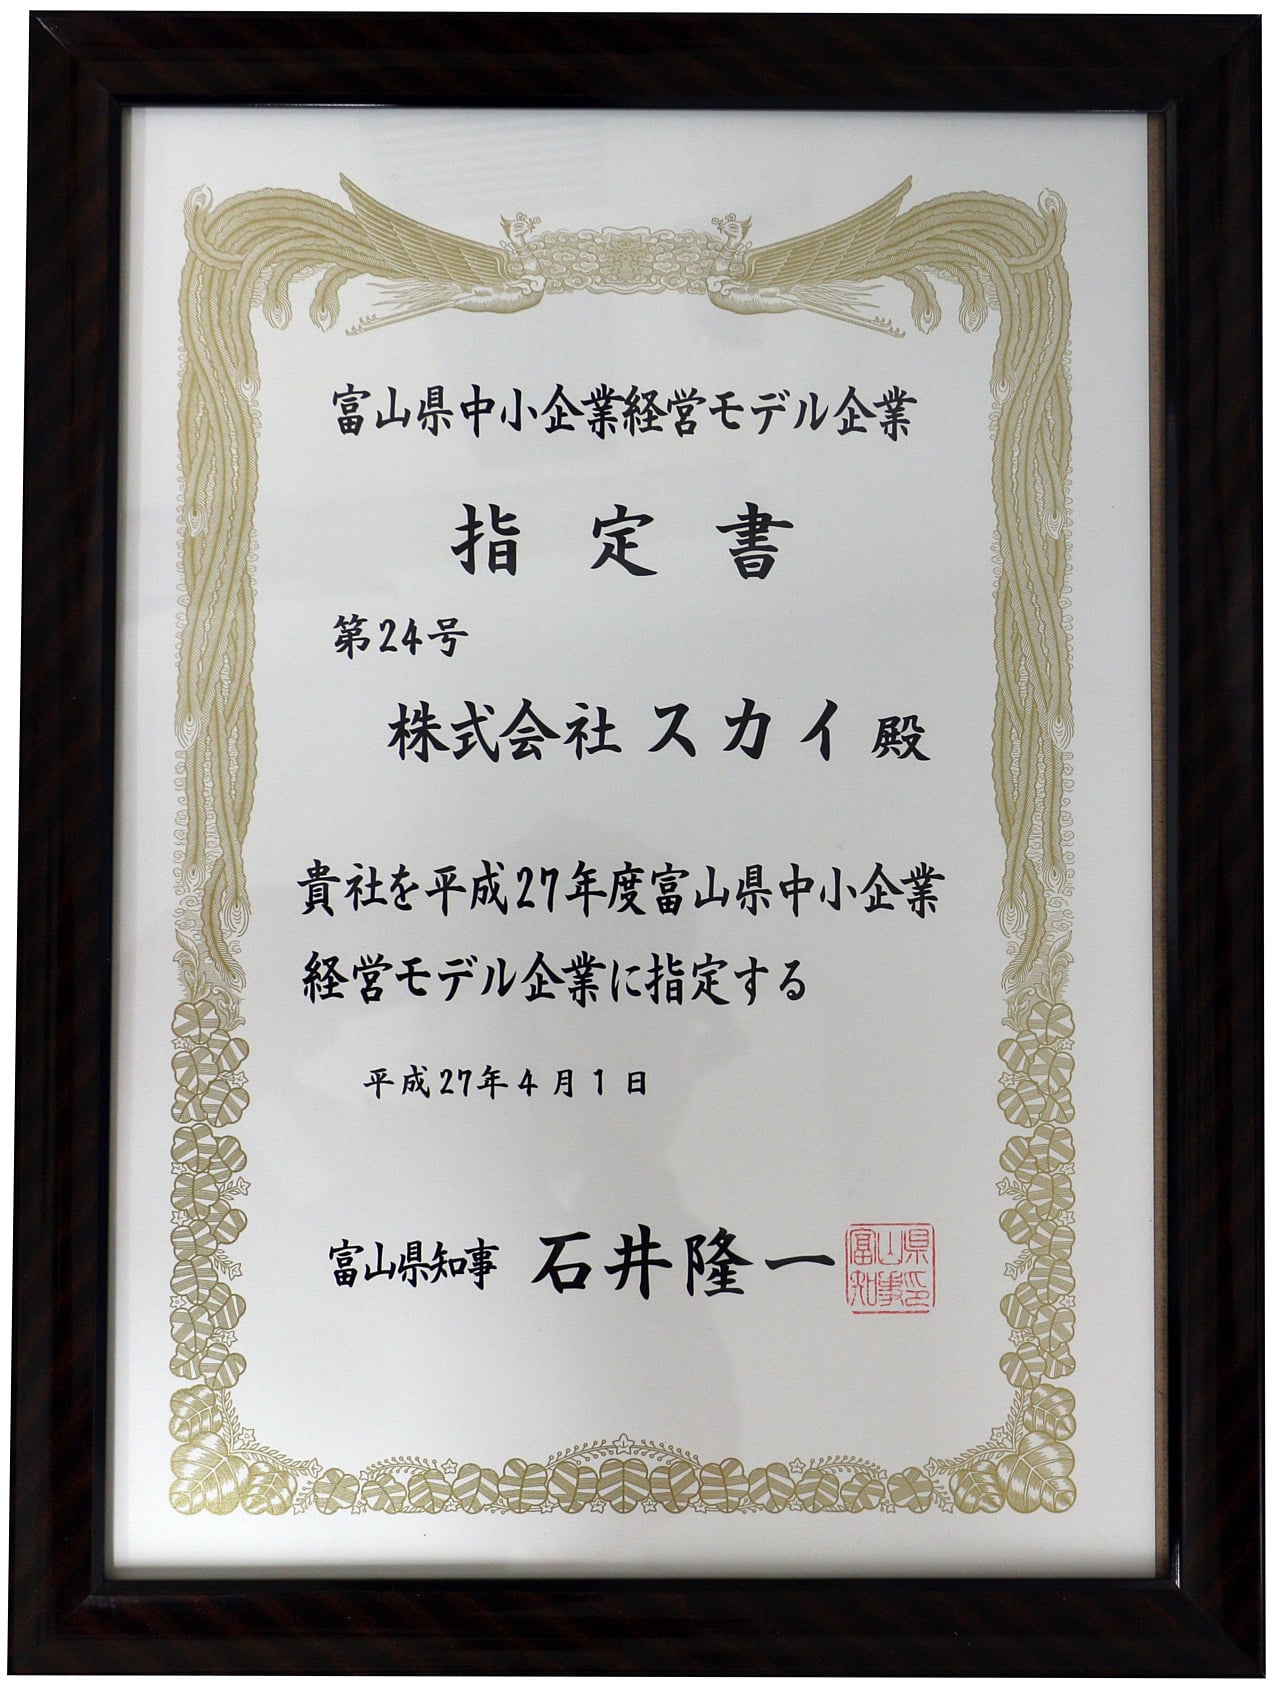 富山県中小企業経営モデル企業
指定書
第24号
株式会社スカイ殿
貴社を平成27年度富山県中小企業
経営モデル企業に指定する
平成27年4月1日
富山県知事 石井隆一
富山県
知事印